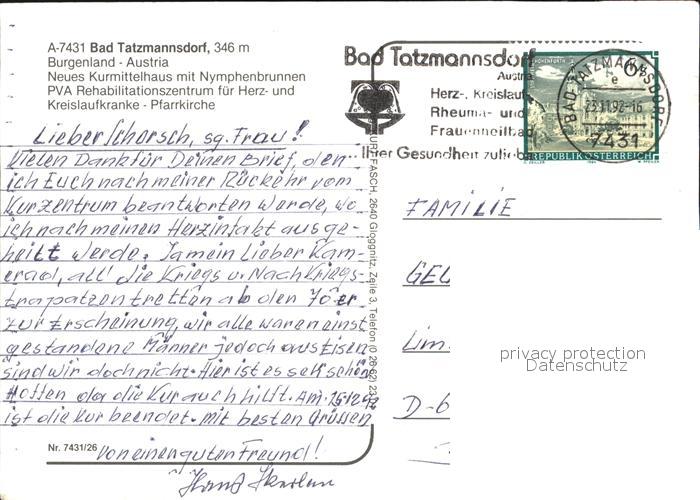 A-7431 Bad Tatzmannsdorf, 346 m
Burgenland - Austria
Neues Kurmittelhaus mit Nymphenbrunnen
PVA Rehabilitationszentrum für Herz- und
Kreislaufkranke - Pfarrkirche
Bad Tatzmannsdorf
Austria
Herz-, Kreislauf
Rheuma- und
Frauenheilbad
Ihrer Gesundheit zuliebe
BAD TATZMANNSDORF
23.11.92-16
7431
REPUBLIK ÖSTERREICH
Lieber Schorsch, sg. Frau!
Vielen Dank für Deinen Brief, den
ich Euch nach meiner Rückehr vom
Kurzentrum beantworten werde, wo
ich nach meinen Herzinfakt ausge-
heilt werde. Ja mein Lieber Kam-
erad, all' die Kriegs u. Nachkriegs-
trapatzen tretten ab den 70er
zur Erscheinung, wir alle waren einst
gestandene Männer jedoch aus Eisen
sind wir doch nicht. Hier ist es sehr schön
Hoffen da die Kur auch hilft. Am
ist die Kur beendet. mit besten Grüssen
von einen guten Freund!
Hans
Nr. 7431/26
KURT FASCH, 2640 Gloggnitz, Zeile 3, Telefon (0 26 62) 23
FAMILIE
GEL
Lim
D-6
privacy protection
Datenschutz